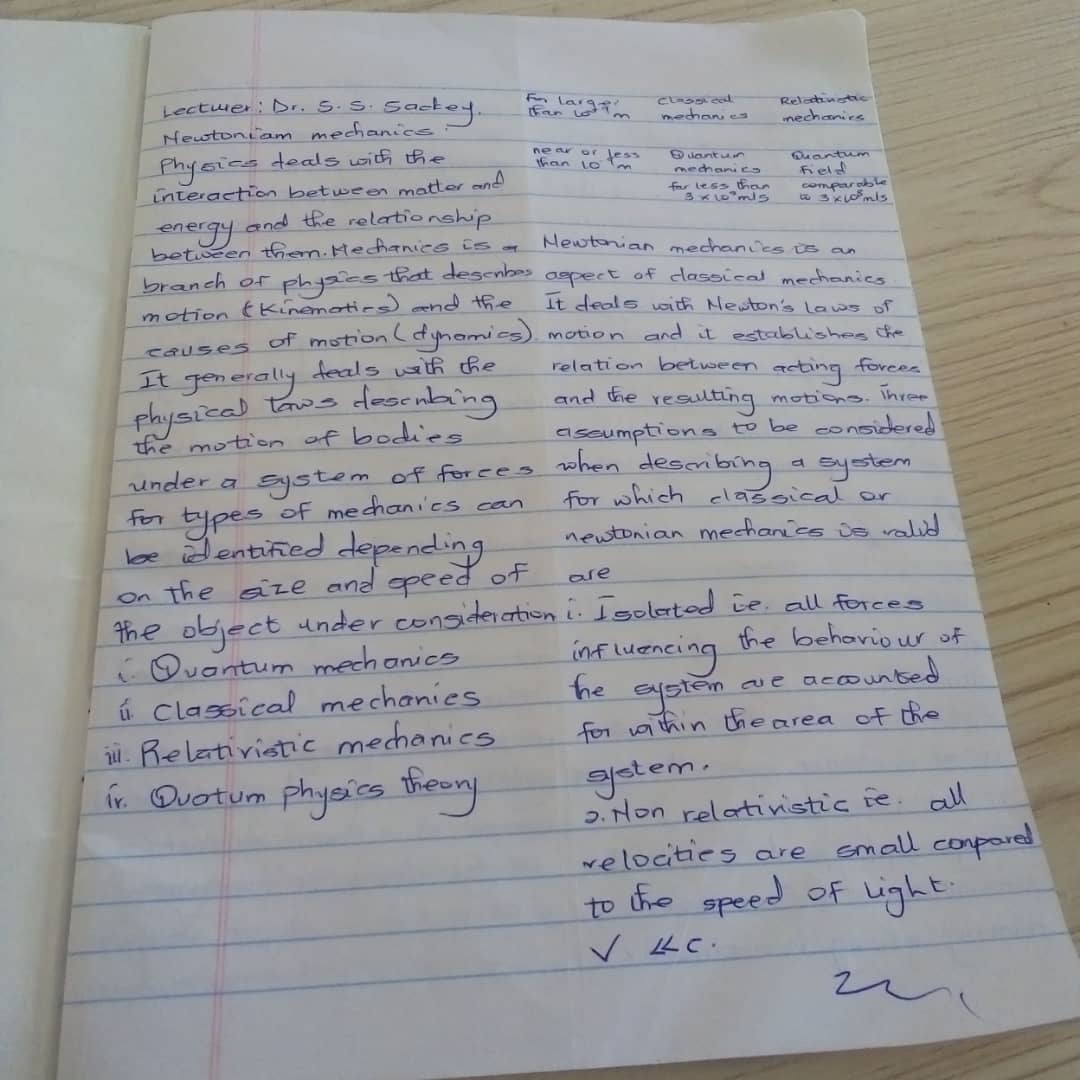 Lecturer: Dr. S. S. Sackey.
Newtoniam mechanics.
Physics deals with the
interaction between matter and
energy and the relationship
between them. Mechanics is a
branch of physics that describes
motion (Kinematics) and the
causes of motion (dynamics).
It generally deals with the
physical laws describing
the motion of bodies
under a system of forces
for types of mechanics can
be identified depending
on the size and speed of
the object under consideration
i. Quantum mechanics
ii. Classical mechanics
iii. Relativistic mechanics
iv. Quotum physics theory
Far larger Classical Relativistic
than 10⁻⁹m mechanics mechanics
near or less Quantum Quantum
than 10⁻⁹m mechanics Field
far less than comparable
3 x 10⁸m/s to 3 x 10⁸m/s
Newtonian mechanics is an
aspect of classical mechanics.
It deals with Newton's laws of
motion and it establishes the
relation between acting forces
and the resulting motions. Three
assumptions to be considered
when describing a system
for which classical or
newtonian mechanics is valid
are
i. Isolated ie. all forces
influencing the behaviour of
the system are accounted
for within the area of the
system.
2. Non relativistic ie. all
velocities are small conpared
to the speed of light.
V << c.